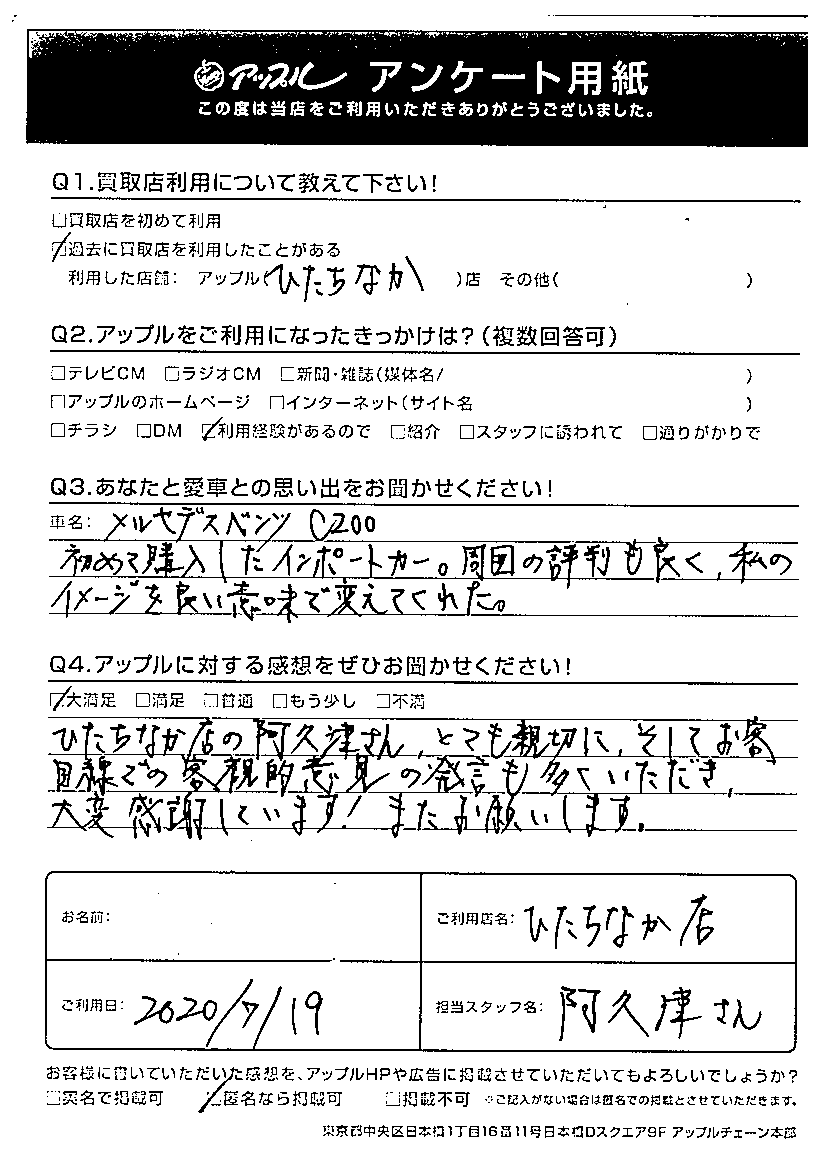 アップル アンケート用紙
この度は当店をご利用いただきありがとうございました。
Q1.買取店利用について教えて下さい!
□買取店を初めて利用
☑過去に買取店を利用したことがある
利用した店舗: アップル(ひたちなか )店 その他( )
Q2.アップルをご利用になったきっかけは?(複数回答可)
□テレビCM □ラジオCM □新聞・雑誌(媒体名/ )
□アップルのホームページ □インターネット(サイト名 )
□チラシ □DM ☑利用経験があるので □紹介 □スタッフに誘われて □通りがかりで
Q3.あなたと愛車との思い出をお聞かせください!
車名: メルセデスベンツ C200
初めて購入したインポートカー。周囲の評判も良く、私の
イメージを良い意味で変えてくれた。
Q4.アップルに対する感想をぜひお聞かせください!
☑大満足 □満足 □普通 □もう少し □不満
ひたちなか店の阿久津さん、とても親切に、そしてお客
目線での客観的意見の発言も多くいただき、
大変感謝しています!またお願いします。
お名前:
ご利用店名: ひたちなか店
ご利用日: 2020/7/19
担当スタッフ名: 阿久津さん
お客様に書いていただいた感想を、アップルHPや広告に掲載させていただいてもよろしいでしょうか?
□実名で掲載可 ☑匿名なら掲載可 □掲載不可 ※ご記入がない場合は匿名での掲載とさせていただきます。
東京都中央区日本橋1丁目16番11号日本橋Dスクエア9F アップルチェーン本部